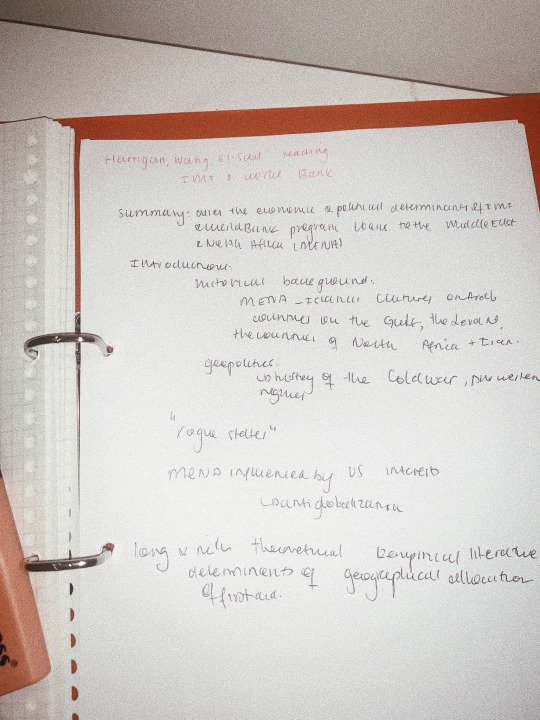 Harrigan, Wang, El-Said reading
IMF & World Bank
Summary: over the economic & political determinants of IMF
& World Bank program loans to the Middle East
& North Africa (MENA)
Introduction:
historical background:
MENA - Islamic Cultures on Arab
countries on the Gulf, the Levant,
the countries of North Africa + Iran.
geopolitics:
history of the Cold war, pro western
regimes
"rogue states"
MENA influenced by US interests
↳ antiglobalization
long & rich theoretical & empirical literature
determinants of geographical allocation
of